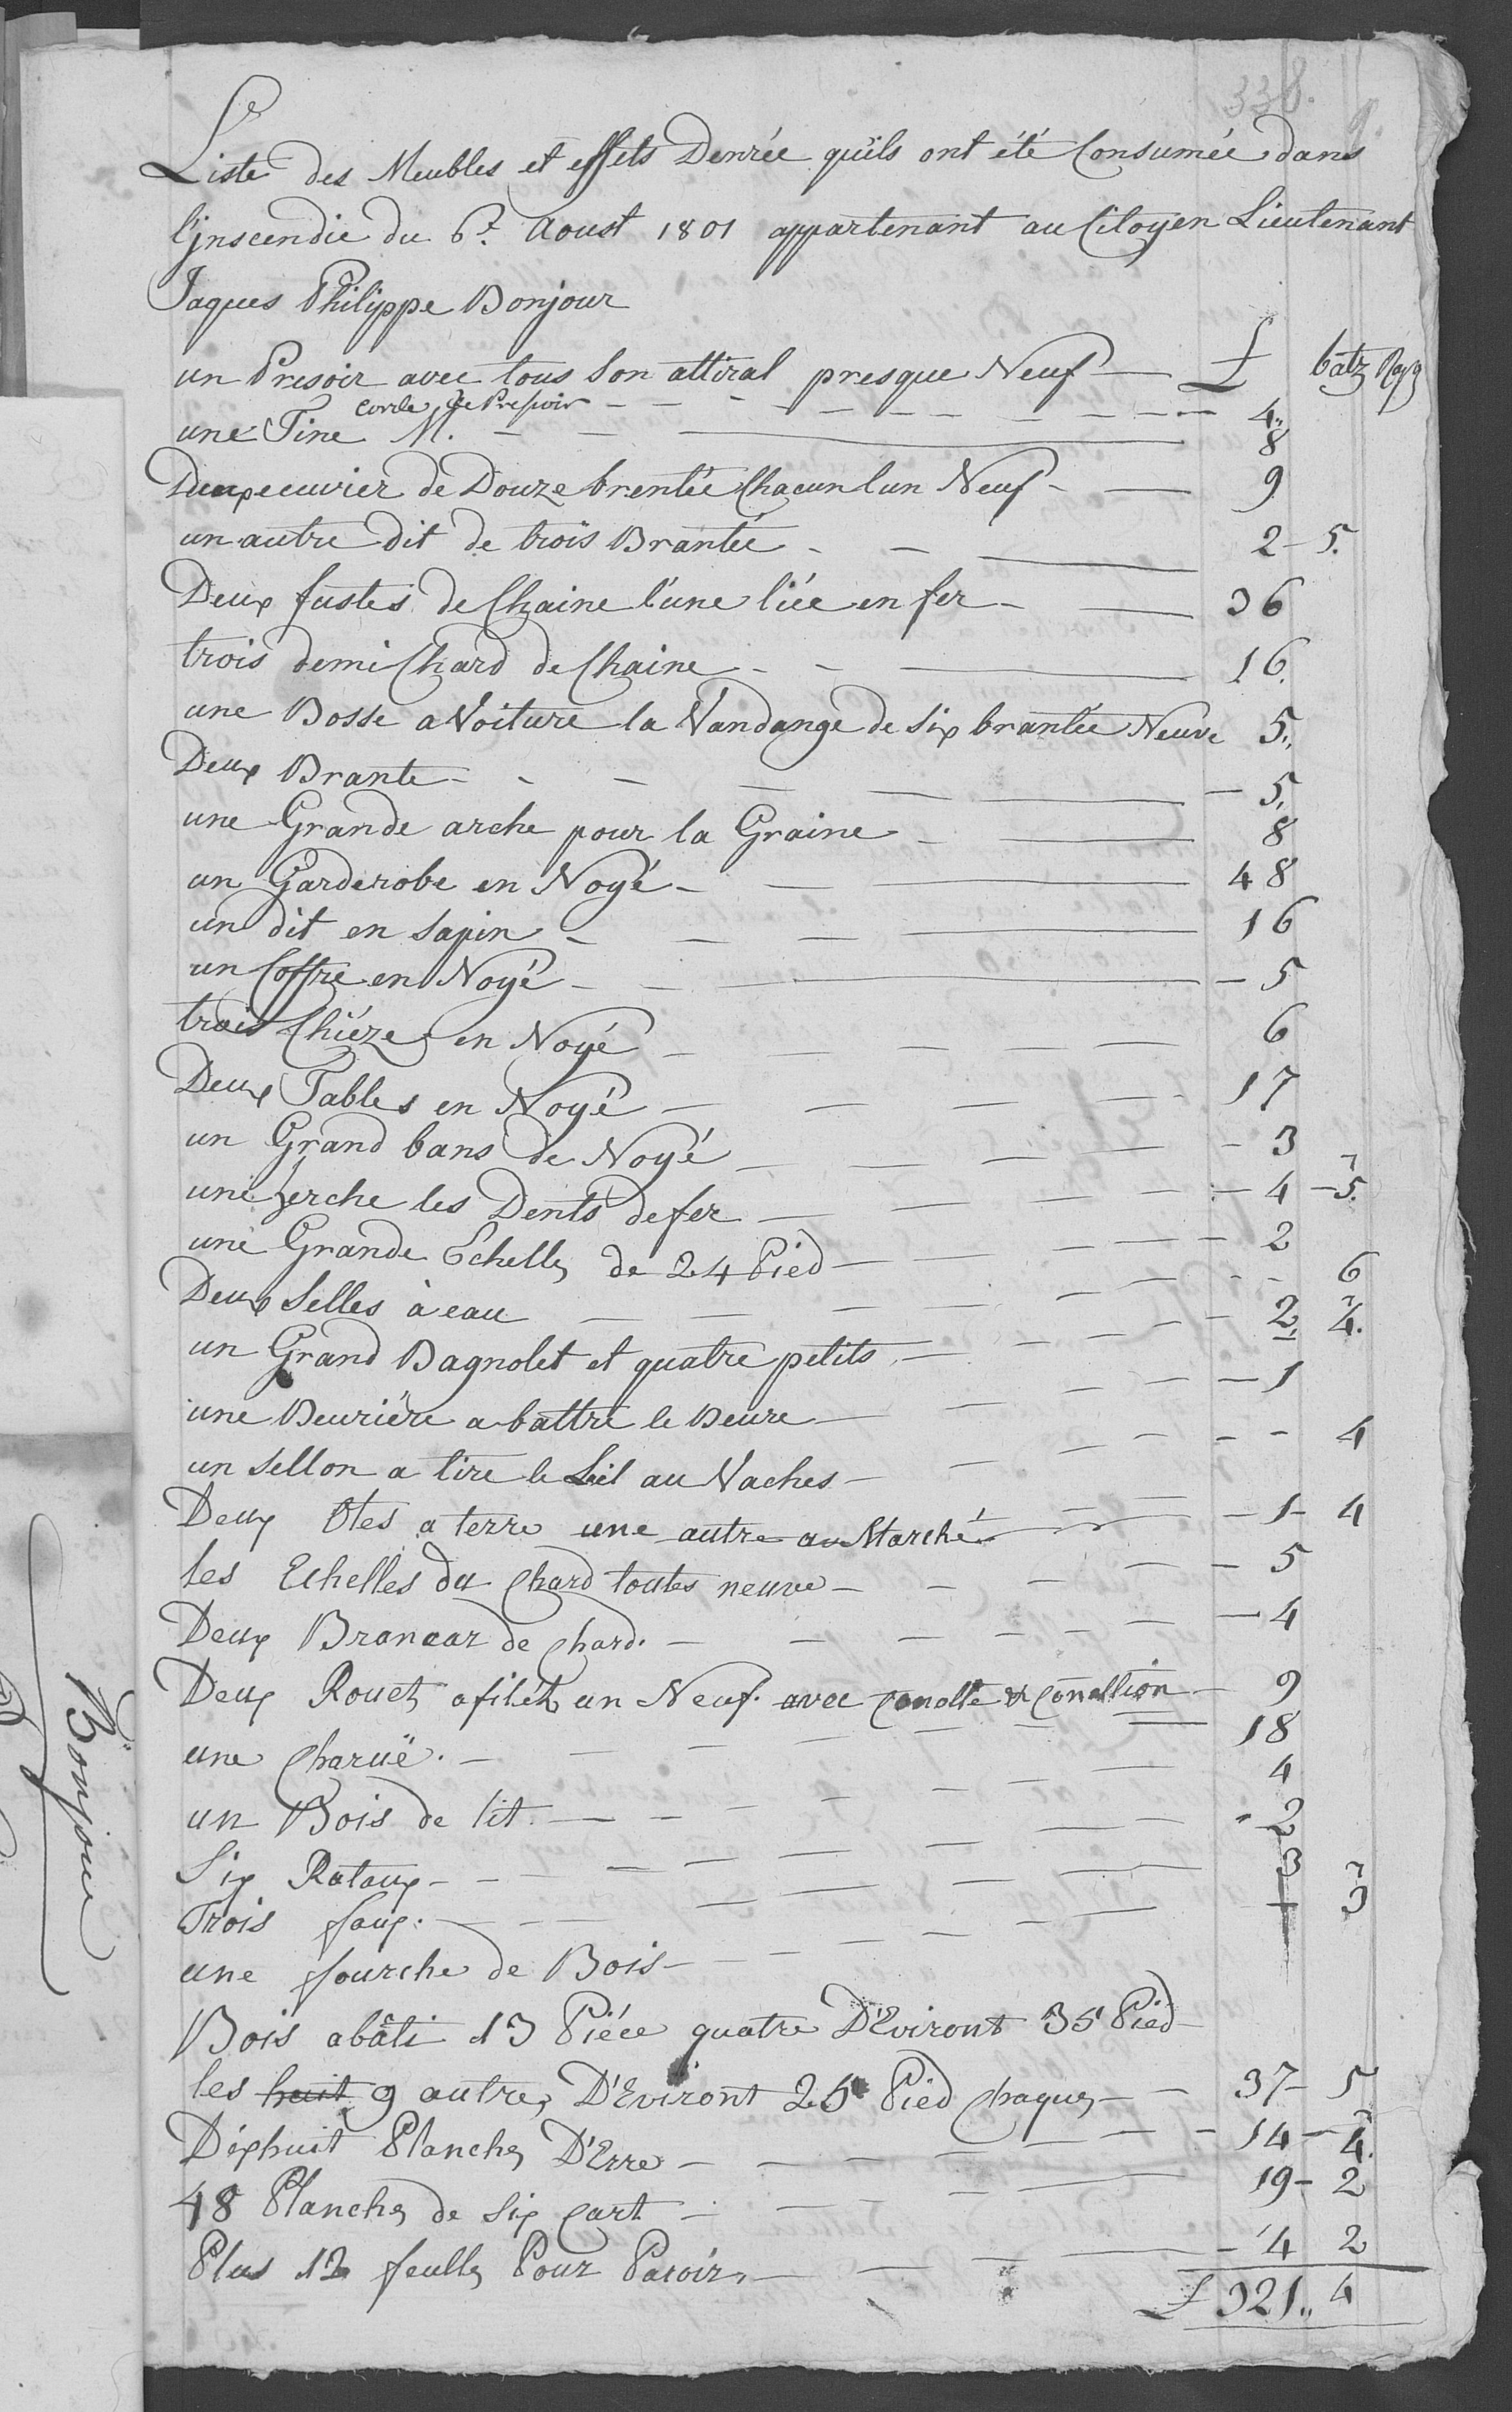 338.
Liste des Meubles et effets Denrée quïls ont été Consumée dans
l'Jnscendie du 6.e Aoust 1801 appartenant au Citoyen Lieutenant
Jaques Philippe Bonjour
£ batz Rap
un Presoir avec tous Son attiral presque Neuf
corde de Pressoir 4
une Tine 8
Deux ecuvier de Douze brentée Chacun lun Neuf 9
un autre dit de trois Brantée 2 - 5.
Deux fustes de Chaine l'une liée en fer 36
trois demi Chard de Chaine 16.
une Bosse a Voiture la Vandange de Six brantée Neuve 5.
Deux Brante 5.
une Grande arche pour la Graine 8
un Garderobe en Noyé 48
un dit en sapin 16
un Coffre en Noyé 5
trois Chiéze en Noyé 6
Deux Tables en Noyé 17
un Grand bans de Noyé 3
une herche les Dents de fer 4 - 5.
une Grande Echelle de 24 Pied 2
Deux Selles à eau 6
un Grand Bagnolet et quatre petits 2. 4.
une Beuriére a battre le Beure 1
un sellon a tire le Lait au Vaches 4
Deux Otes a terre une autre au Marché 1 - 4
les Echelles du Chard toutes neuve 5
Deux Brancar de Chard. 4
Deux Rouet afilét un Neuf. avec 9
une Charuë. 18
un Bois de lit 4
Six Rataux 2
Trois faux. 3
une fourche de Bois 3
Bois abâti 13 Piéce quatre D'Eviront 35 Pied
les huit 9 autres D'Eviront 25 Pied Chaque 37 - 5
Dixhuit Planches D'Erre 14 - 4.
48 Planches de Six Cart 19 - 2
Plus 12 feulles Pour Paroir 4 2
£ 321.. 4
Bonjour